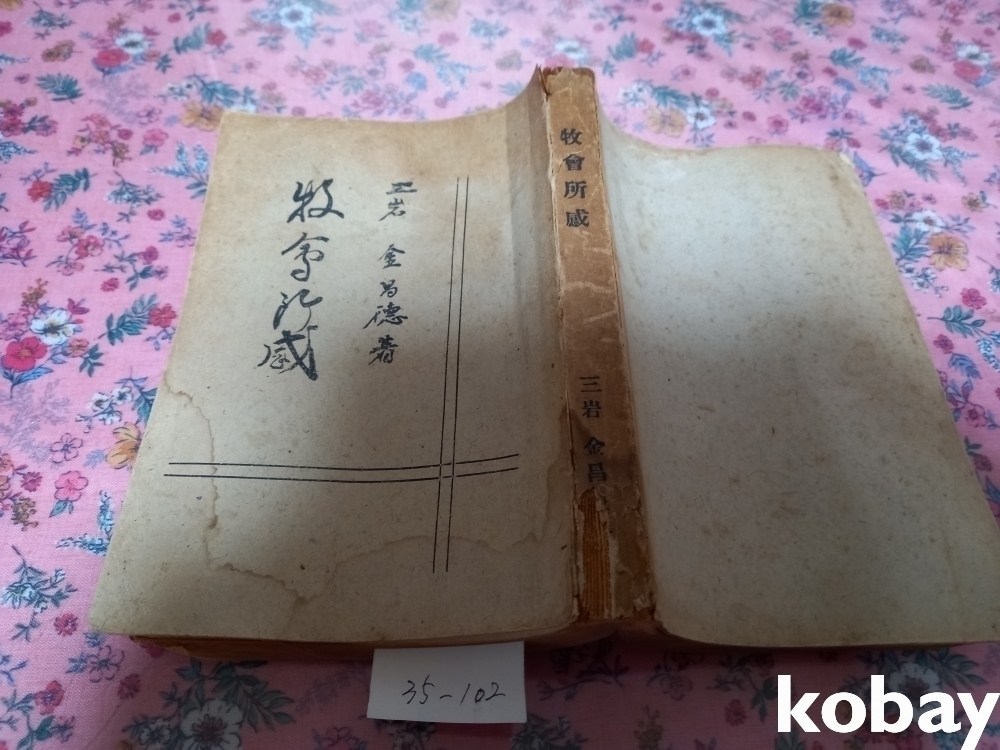 牧會所感
三岩 金昌德 著
牧會所感
三岩 金昌
35-102
kobay